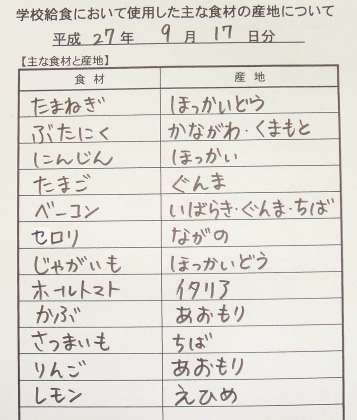 学校給食において使用した主な食材の産地について
平成 27 年 9 月 17 日分
【主な食材と産地】
食材 産地
たまねぎ ほっかいどう
ぶたにく かながわ・くまもと
にんじん ほっかい
たまご ぐんま
ベーコン いばらき・ぐんま・ちば
セロリ ながの
じゃがいも ほっかいどう
ホールトマト イタリア
かぶ あおもり
さつまいも ちば
りんご あおもり
レモン えひめ